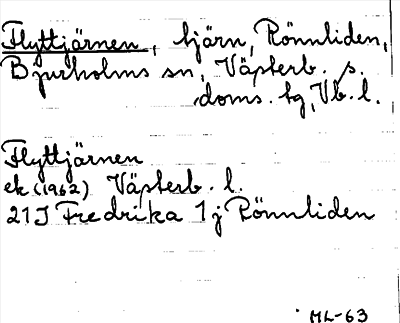 Flyttjärnen, tjärn, Rönnliden,
Bjurholms sn, Västerb. s.
doms. hg, Vb. l.
Flyttjärnen
ek (1962) Västerb. l.
21J Fredrika 1j Rönnliden
ML-63